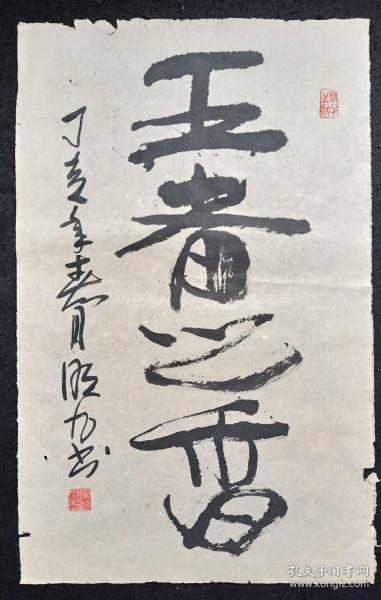 王者之香
丁亥年春月
书
孔夫子旧书网
www.kongfz.com